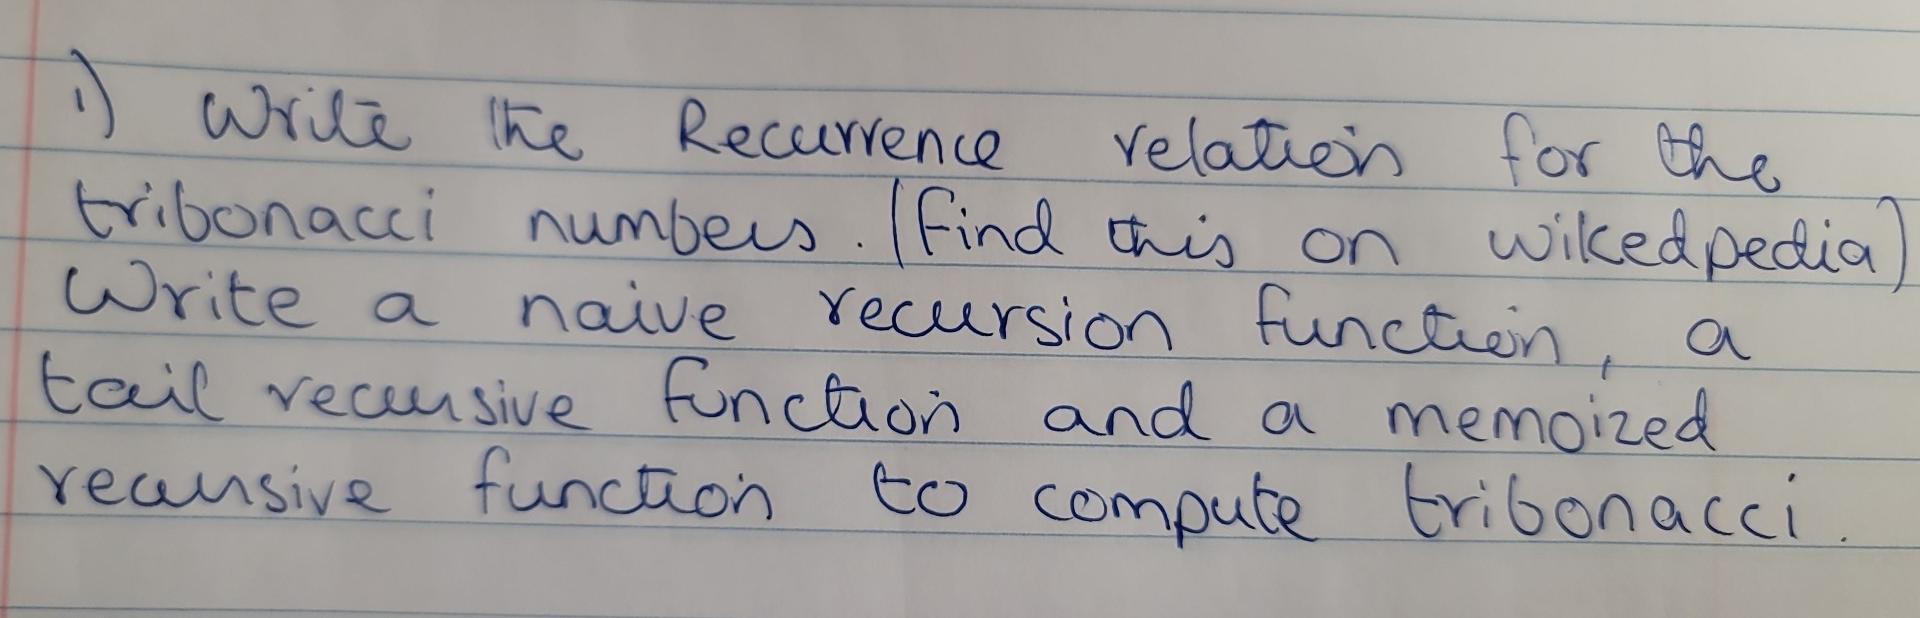 1) Write the Recurrence relation for the
tribonacci numbers. (find this on wikedpedia)
Write a naive recursion function, a
tail recursive function and a memoized
recursive function to compute tribonacci.